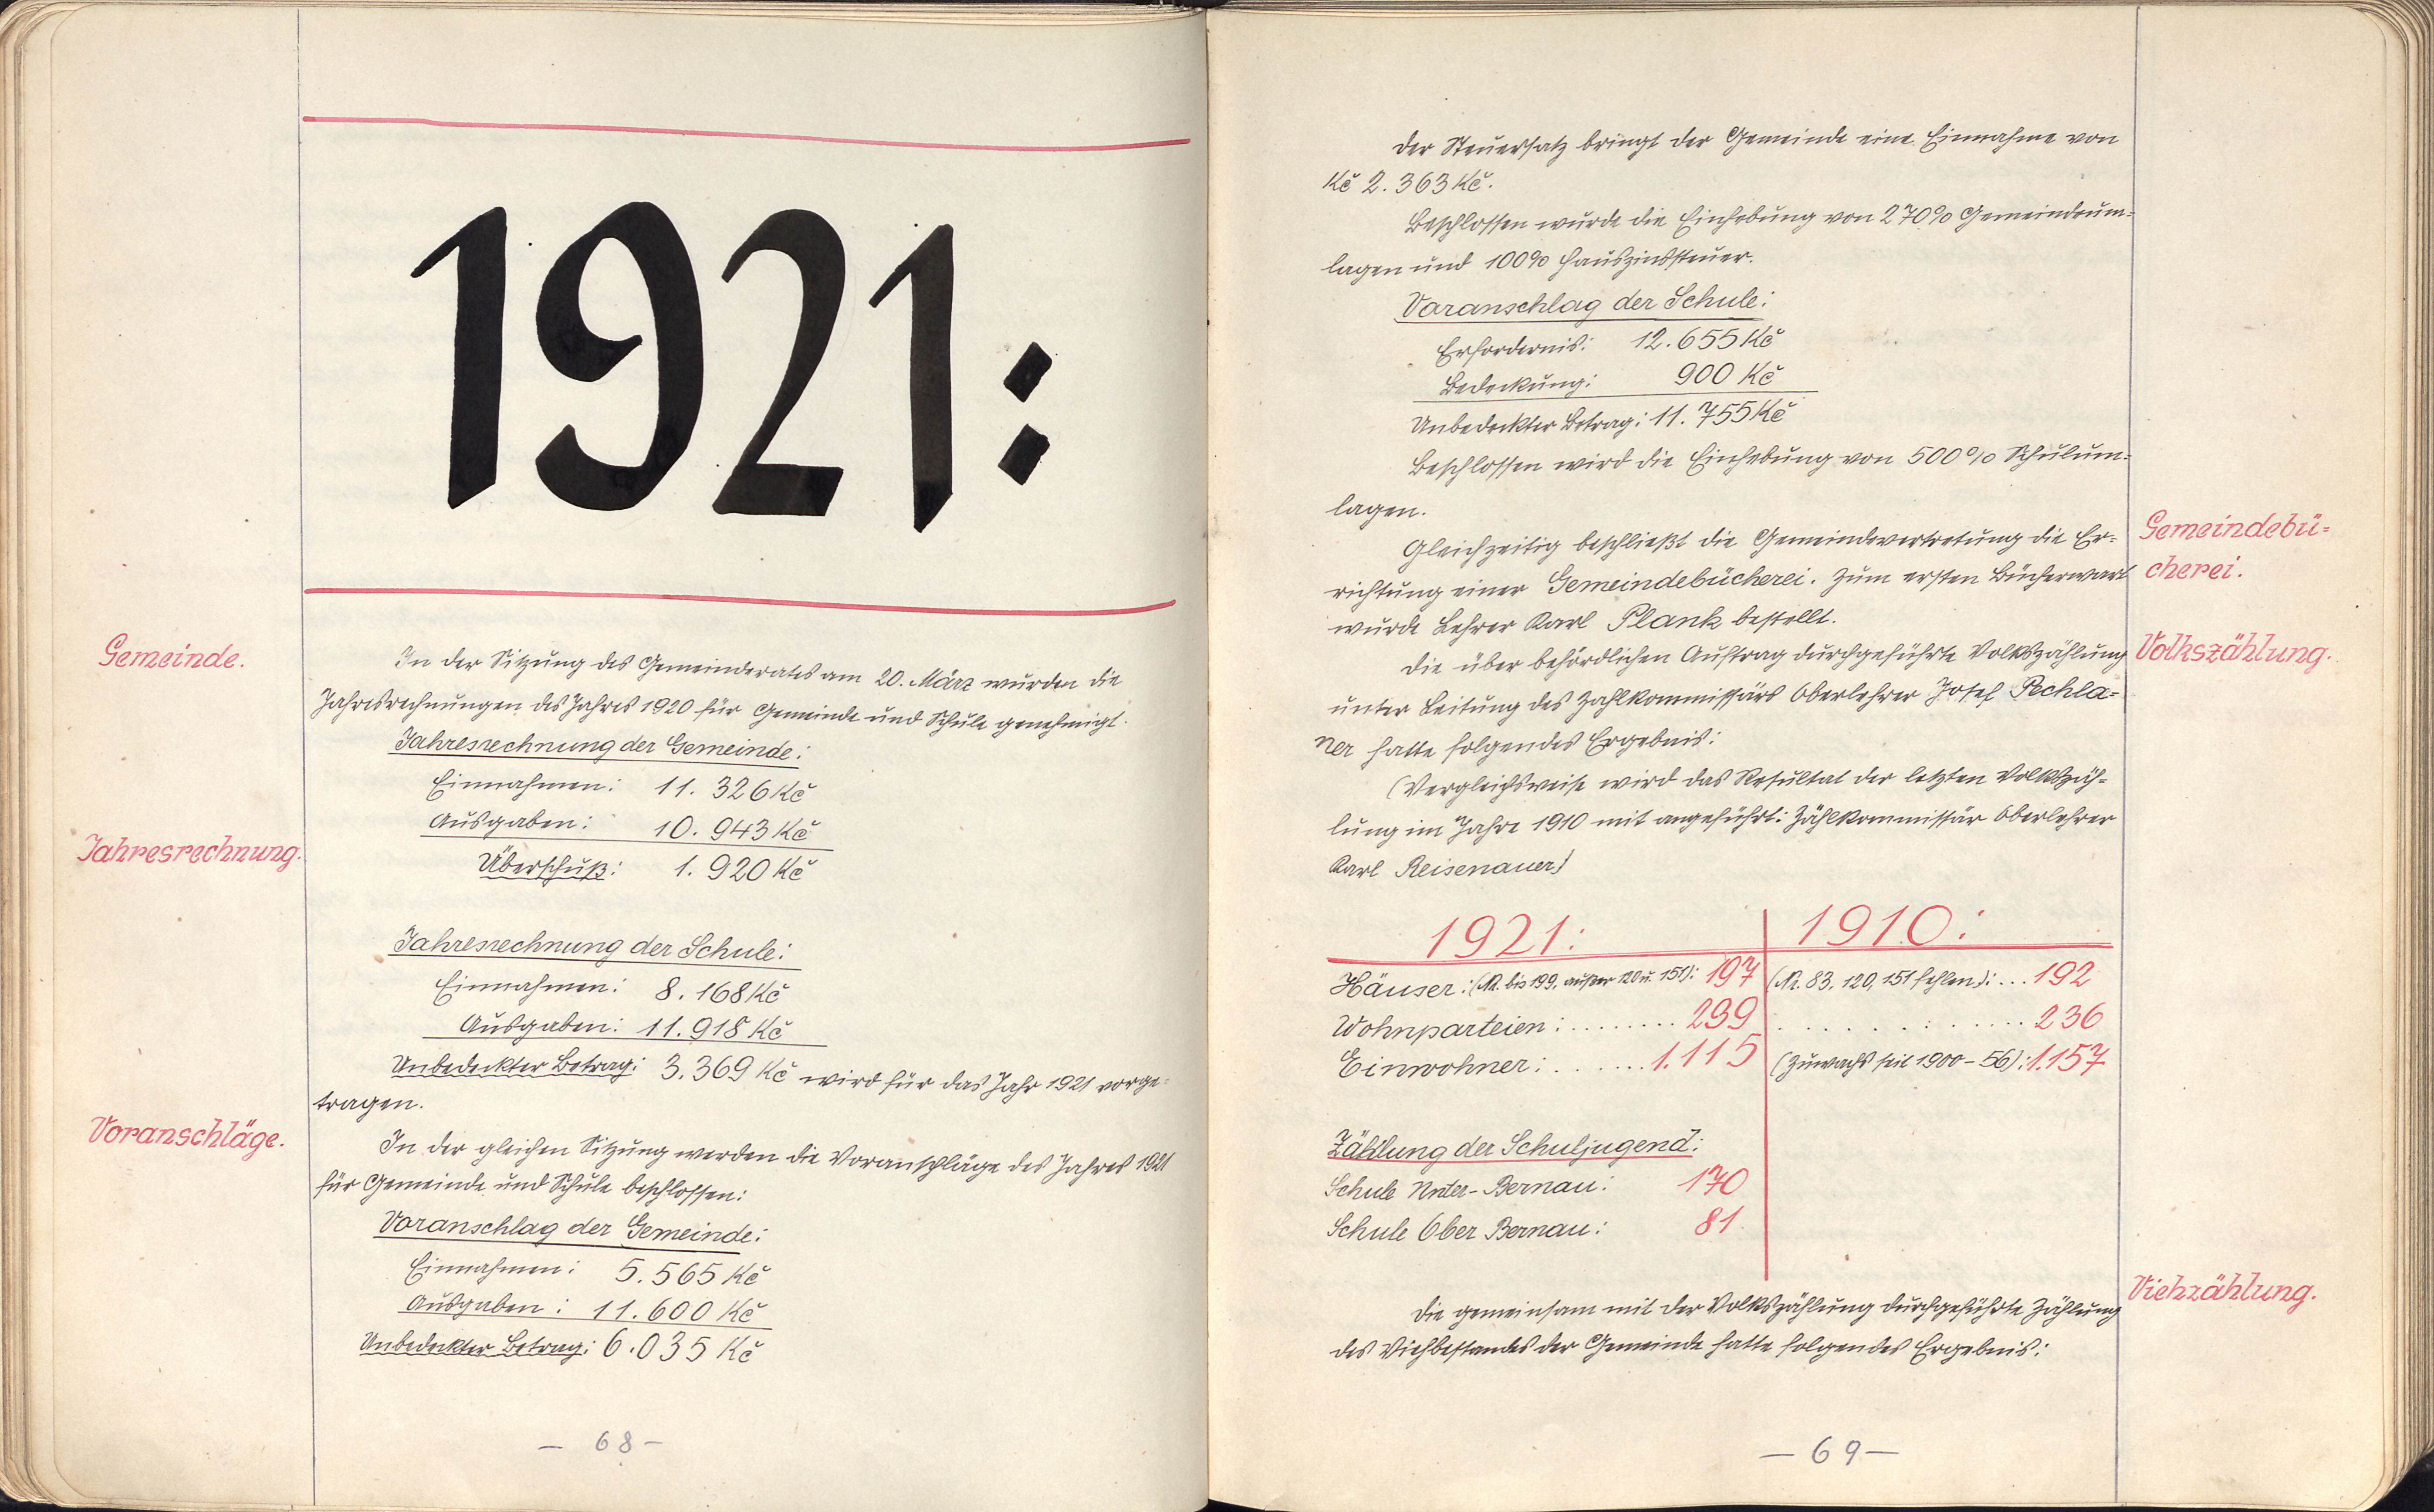 1921:
Gemeinde.
In der Sitzung des Gemeinderates am 20. März wurden die
Jahresrechnungen des Jahres 1920 für Gemeinde und Schule genehmigt.
Jahresrechnung der Gemeinde:
Einnahmen: 11. 326 Kč
Ausgaben: 10. 943 Kč
Jahresrechnung.
Überschuß: 1. 920 Kč
Jahresrechnung der Schule:
Einnahmen: 8. 168 Kč
Ausgaben: 11. 918 Kč
Unbedeckter Betrag: 3. 369 Kč wird für das Jahr 1921 vorge=
tragen.
Voranschläge.
In der gleichen Sitzung werden die Voranschläge des Jahres 1921
für Gemeinde und Schule beschlossen:
Voranschlag der Gemeinde:
Einnahmen: 5. 565 Kč
Ausgaben: 11. 600 Kč
Unbedeckter Betrag: 6. 035 Kč
— 68 —
Der Steuersatz bringt der Gemeinde eine Einnahme von
Kč 2. 363 Kč.
Beschlossen wurde die Einhebung von 270% Gemeindeum=
lagen und 100% Hauszinssteuer.
Voranschlag der Schule:
Erfordernis: 12. 655 Kč
Bedeckung: 900 Kč
Unbedeckter Betrag: 11. 755 Kč
Beschlossen wird die Einhebung von 500% Schulum=
lagen.
Gleichzeitig beschließt die Gemeindevertretung die Er=
Gemeindebü=
richtung einer Gemeindebücherei. Zum ersten Bücherwart
cherei.
wurde Lehrer Karl Plank bestellt.
Die über behördlichen Auftrag durchgeführte Volkszählung
Volkszählung.
unter Leitung des Zahlkommissärs Oberlehrer Josef Pechla=
ner hatte folgendes Ergebnis:
(Vergleichsweise wird das Resultat der letzten Volkszäh=
lung im Jahre 1910 mit angeführt: Zählkommissär Oberlehrer
Karl Reisenauer)
1921: 1910:
Häuser: (Nr. bis 199, außer 120 u. 151): 197 (Nr. 83, 120, 151 fehlen): ... 192
Wohnparteien: ........ 239 ............ 236
Einwohner: ....... 1.115 (Zuwachs seit 1900 – 56): 1.157
Zählung der Schuljugend:
Schule Unter-Bernau: 170
Schule Ober Bernau: 81
Die gemeinsam mit der Volkszählung durchgeführte Zählung
Viehzählung.
des Viehbestandes der Gemeinde hatte folgendes Ergebnis:
— 69 —